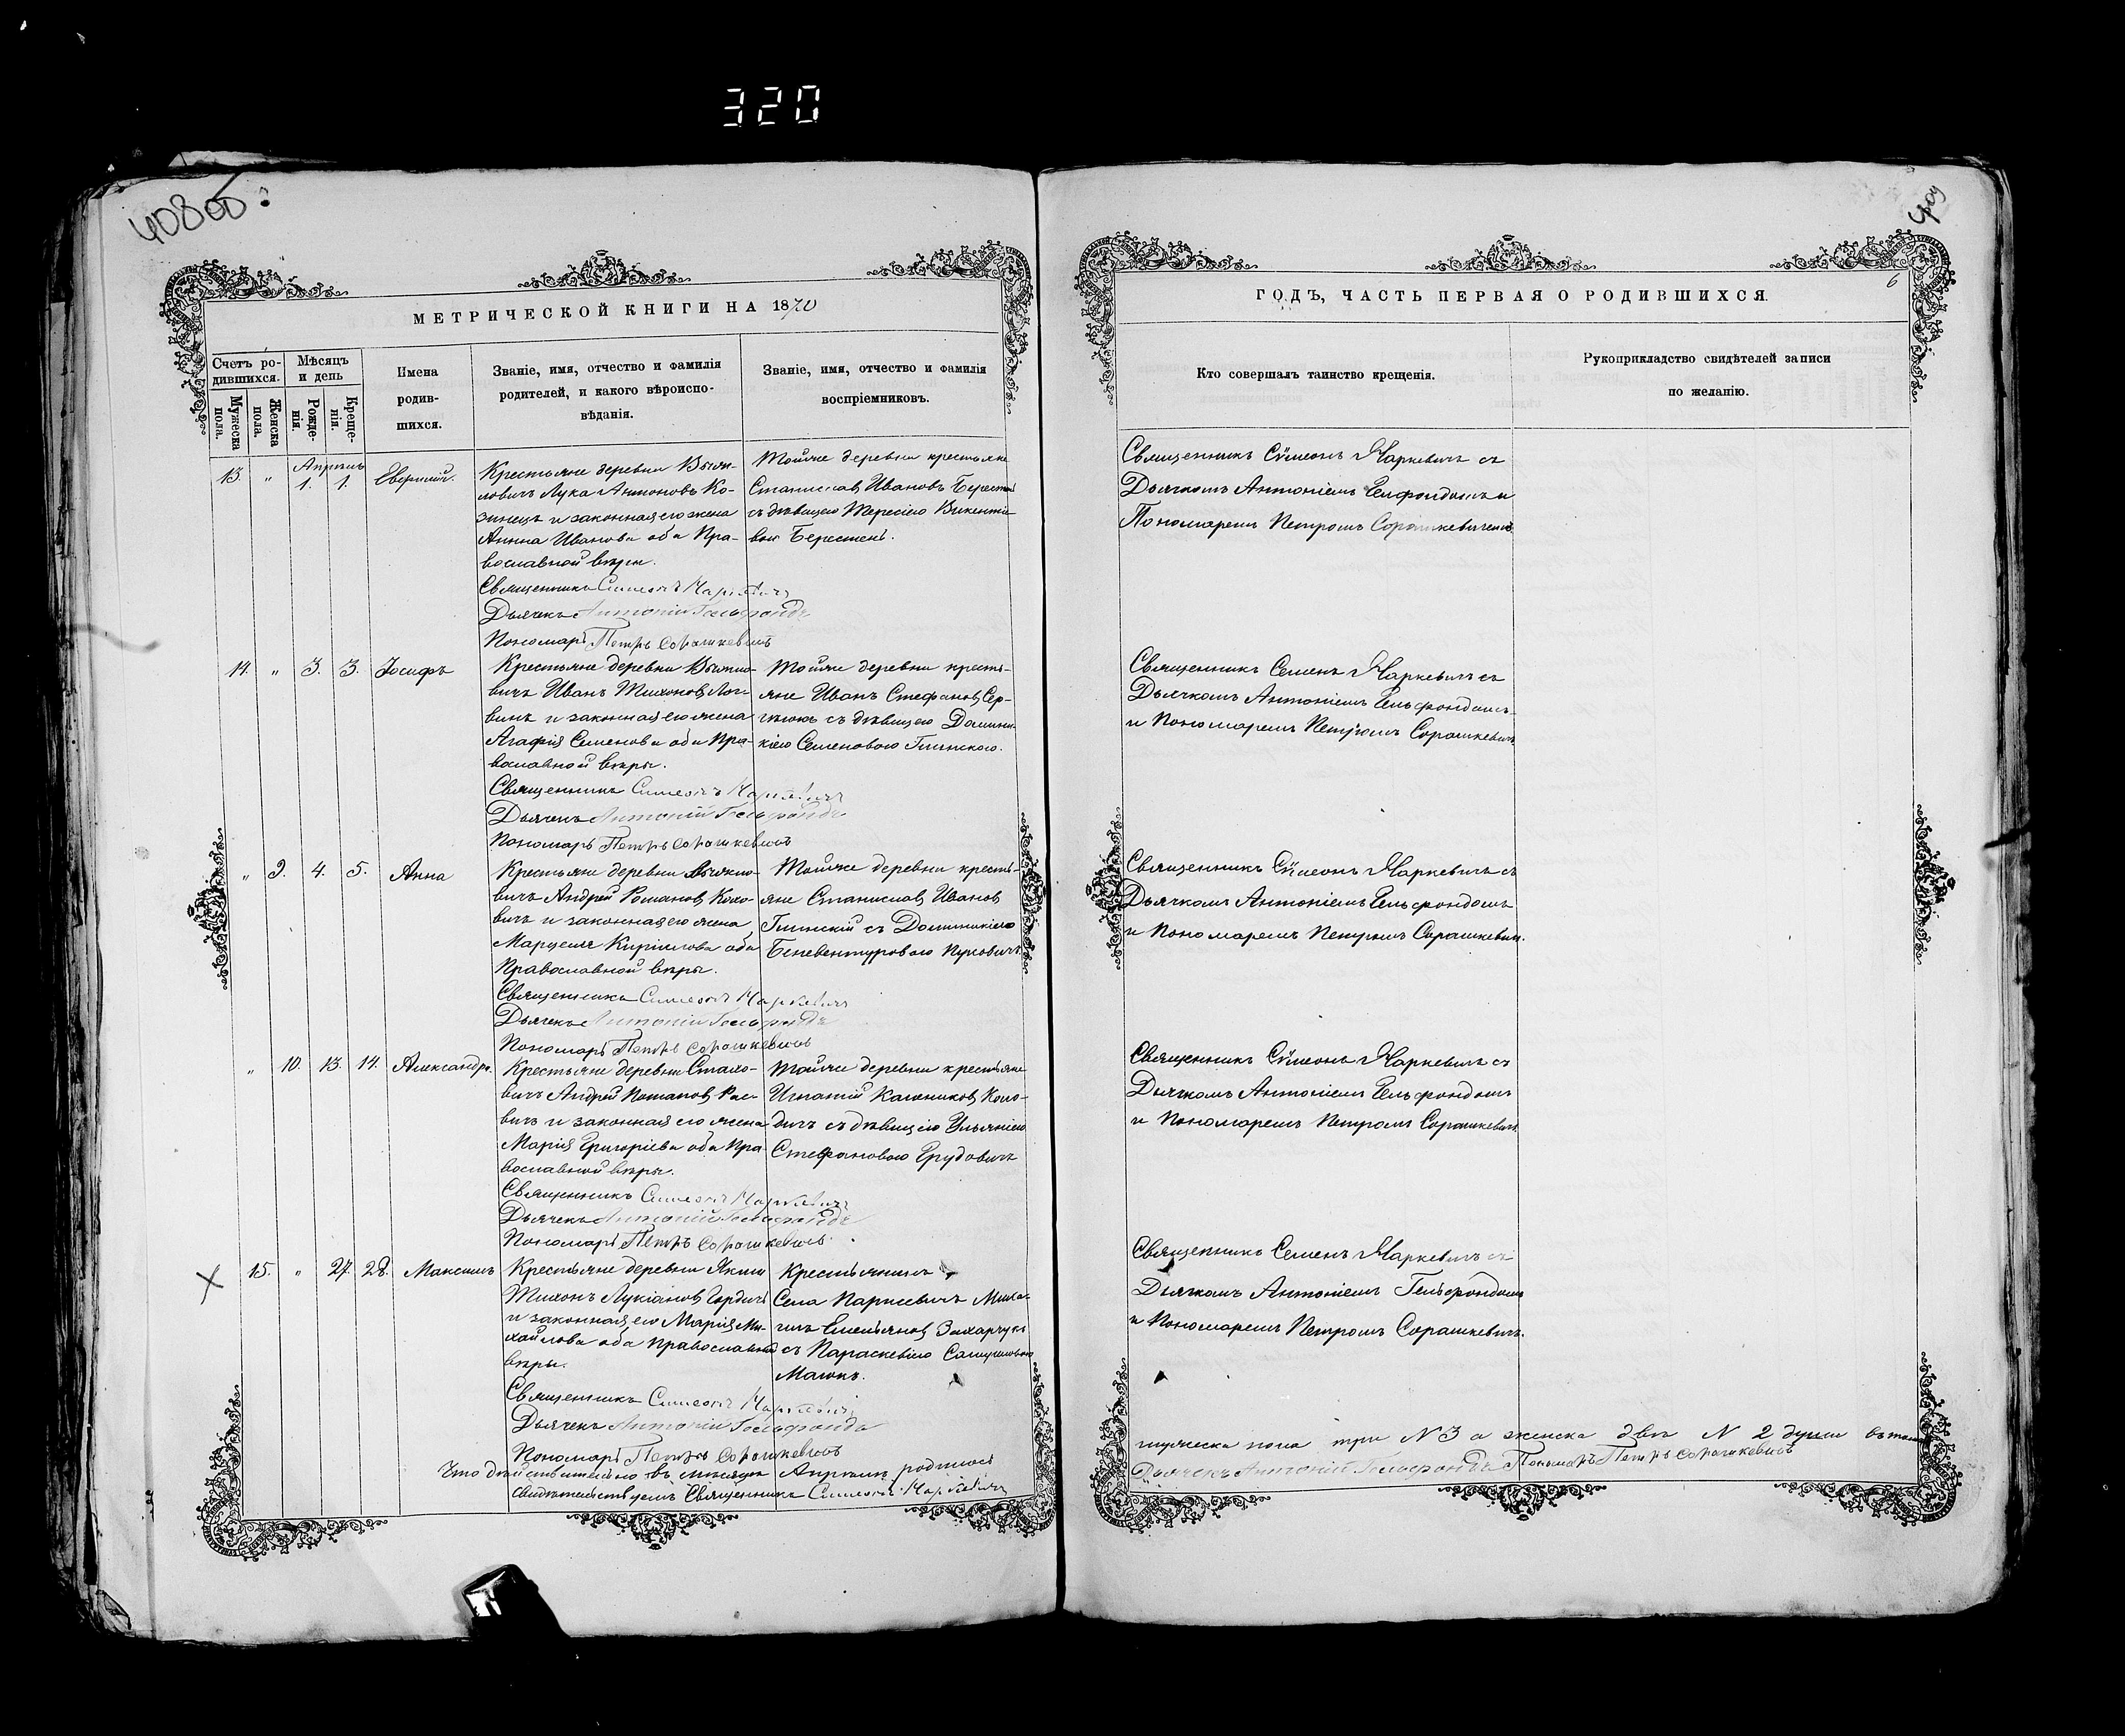 320
408об
409
6
МЕТРИЧЕСКОЙ КНИГИ НА 1870
Счетъ ро-
дившихся.
Мѣсяцъ
и день
Мужеска
пола.
Женска
пола.
Рожде-
нія.
Креще-
нія.
Имена
родив-
шихся.
Званіе, имя, отчество и фамилія
родителей, и какого вѣроиспо-
вѣданія.
Званіе, имя, отчество и фамилія
воспріемниковъ.
ГОДЪ, ЧАСТЬ ПЕРВАЯ О РОДИВШИХСЯ.
Кто совершалъ таинство крещенія.
Рукоприкладство свидѣтелей записи
по желанію.
Апрѣль
13. " 1. 1.
Крестьяне деревни
Лука Антоновъ Ко-
зинецъ и законная его жена
Анна Иванова оба Пра-
вославной вѣры.
Священникъ Симеонъ Маркевичъ
Дьячекъ Антоній Гельфондъ
Пономарь Петръ Сорошкевичъ
Тойже деревни крестьяне
Станиславъ Ивановъ
съ дѣвицею Тересіею Викентіе-
вою Берестень.
Священникъ Сѵмеонъ Маркевичъ съ
Дьячкомъ Антоніемъ Гельфондомъ и
Пономаремъ Петромъ Сорошкевичемъ
14. " 3. 3. Іосифъ
Крестьяне деревни
Иванъ Тихоновъ
и законная его жена
Агафія Семенова оба Пра-
вославной вѣры.
Священникъ Симеонъ Маркевичъ
Дьячекъ Антоній Гельфондъ
Пономарь Петръ Сорошкевичъ
Тойже деревни кресть-
яне Иванъ Стефановъ Сер-
съ дѣвицею Домини-
кіею Семеновою Глинскою.
Священникъ Семенъ Маркевичъ съ
Дьячкомъ Антоніемъ Гельфондомъ
и Пономаремъ Петромъ Сорошкевич.
" 9. 4. 5. Анна
Крестьяне деревни
Андрей Романовъ Коло-
вичъ и законная его жена
Кирилова оба
Православной вѣры.
Священникъ Симеонъ Маркевичъ
Дьячекъ Антоній Гельфондъ
Пономарь Петръ Сорошкевичъ
Тойже деревни кресть-
яне Станиславъ Ивановъ
Глинскій съ Доминикіею
Священникъ Сѵмеонъ Маркевичъ съ
Дьячкомъ Антоніемъ Гельфондомъ
и Пономаремъ Петромъ Сорошкевич.
" 10. 13. 14. Александра.
Крестьяне деревни
Андрей Потаповъ
и законная его жена
Марія Григоріева оба Пра-
вославной вѣры.
Священникъ Симеонъ Маркевичъ
Дьячекъ Антоній Гельфондъ
Пономарь Петръ Сорошкевичъ.
Тойже деревни крестьяне
Игнатій
съ дѣвицею Ульяніею
Стефановою Грудовичъ
Священникъ Сѵмеонъ Маркевичъ съ
Дьячкомъ Антоніемъ Гельфондомъ
и Пономаремъ Петромъ Сорошкевич.
15. " 27. 28. Максимъ
Крестьяне деревни
Тихонъ Лукіановъ
и законная его Марія Ми-
хайлова оба Православной
вѣры.
Священникъ Симеонъ Маркевичъ
Дьячекъ Антоній Гельфондъ
Пономарь Петръ Сорошкевичъ
Села Миха-
илъ Емельяновъ Захарчукъ
съ Параскевіею
Священникъ Семенъ Маркевичъ съ
Дьячкомъ Антоніемъ Гельфондомъ
и Пономаремъ Петромъ Сорошкевич.
Что дѣйствительно въ мѣсяцѣ Апрѣлѣ родилось
мужеска пола три N 3 а женска двѣ N 2 души въ томъ
свидѣтельствуемъ Священникъ Симеонъ Маркевичъ
Дьячекъ Антоній Гельфондъ Пономарь Петръ Сорошкевичъ